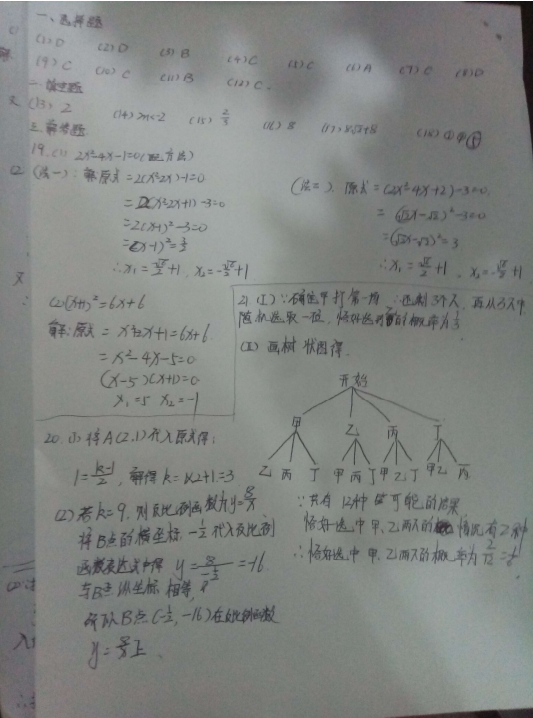 一、选择题
(1) D (2) D (3) B (4) C (5) C (6) A (7) C (8) D
(9) C (10) C (11) B (12) C.
二填空题
(13) 2 (14) m<2 (15) 2/3 (16) 8 (18) ①④⑤
三.解答题
19.(1) 2x²-4x-1=0(配方法)
(法一): 解原式=2(x²-2x)-1=0
=2(x²-2x+1)-3=0
=2(x-1)²-3=0
=(x-1)²=3/2
∴x₁=√6/2+1, x₂=-√6/2+1
(法二). 原式=(2x²-4x+2)-3=0
=(√2x-√2)²-3=0
=(√2x-√2)²=3
∴x₁=√6/2+1, x₂=-√6/2+1
(2)(x+1)²=6x+6
解:原式= x²+2x+1=6x+6
=x²-4x-5=0
(x-5)(x+1)=0
x₁=5 x₂=-1
20. (1) 将A(2,1)代入原式得:
1=(k-1)/2, 解得k=1×2+1=3
(2)若k=9, 则反比例函数为y=8/x
将B点的横坐标-1/2代入反比例
函数表达式中得 y=8/(-1/2)=-16
与B点纵坐标相等,
所以B点(-1/2,-16)在反比例函数
y=8/x上.
21. (Ⅰ)∵确定甲打第一场 ∴还剩3个人, 再从3人中
随机选取一位, 恰好选到的概率为1/3
(Ⅱ) 画树状图得.
开始
甲 乙 丙 丁
乙 丙 丁 甲 丙 丁 甲 乙 丁 甲 乙 丙
∵共有12种等可能的结果
恰好选中甲、乙两人的情况有2种
∴恰好选中甲、乙两人的概率为2/12=1/6